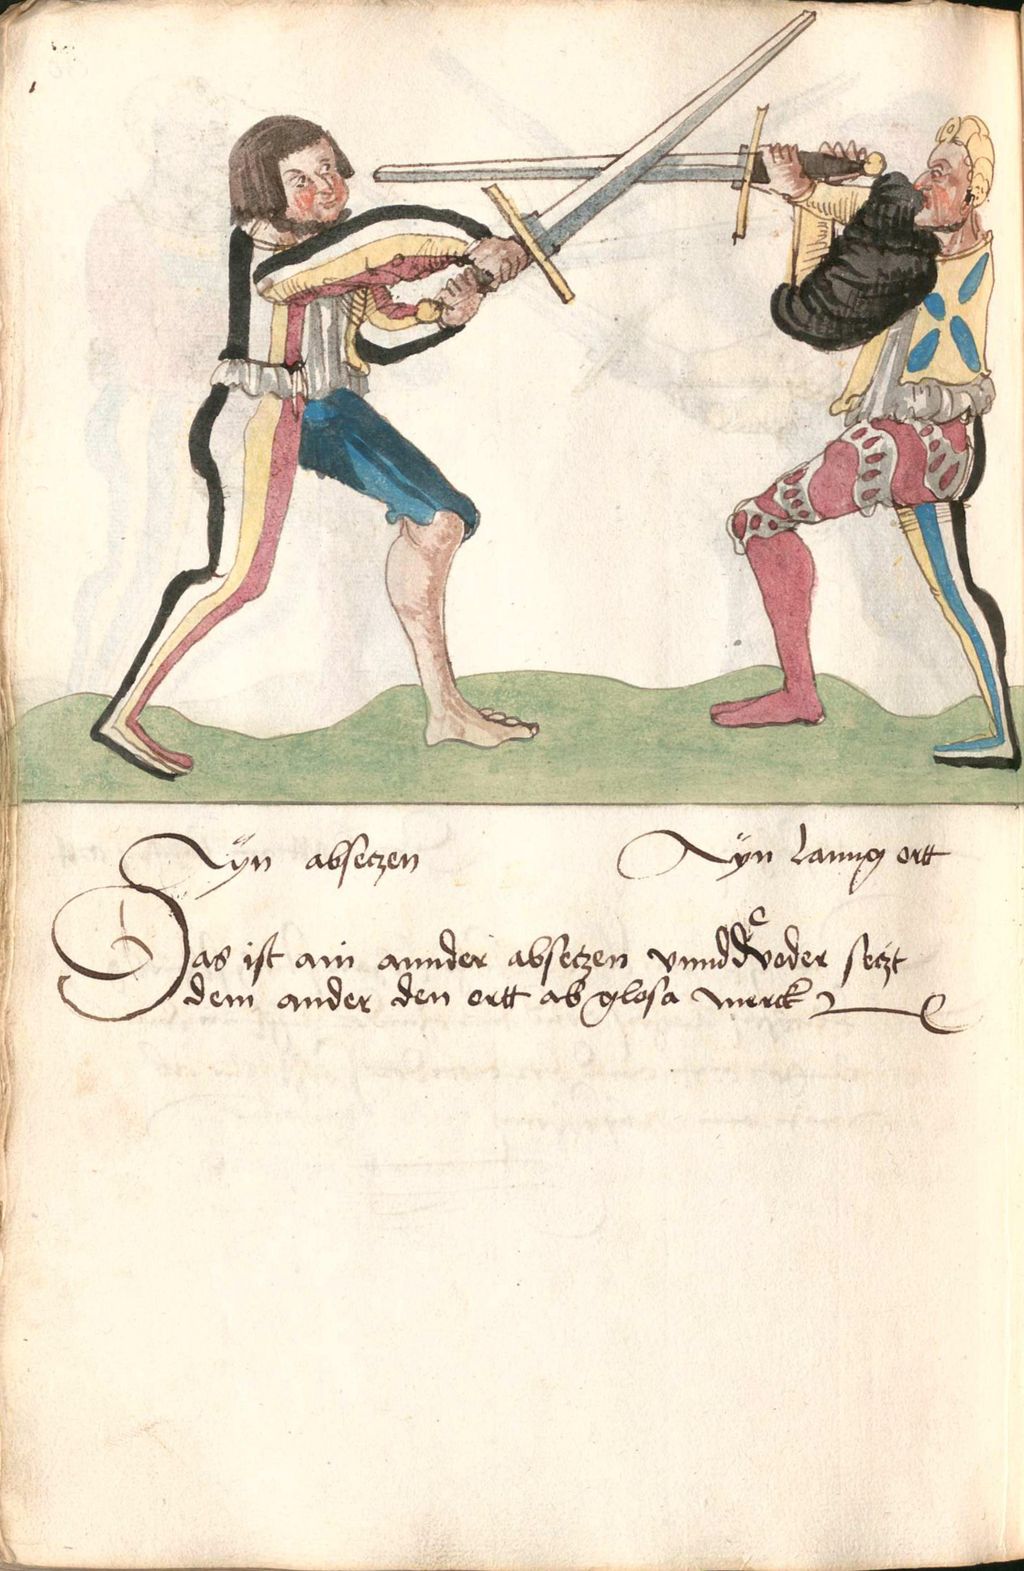 Ayn absetzen
Ayn lanng ortt
Das ist ain annder absetzen vnnd voder setzt
dem ander den ortt ab glosa merck